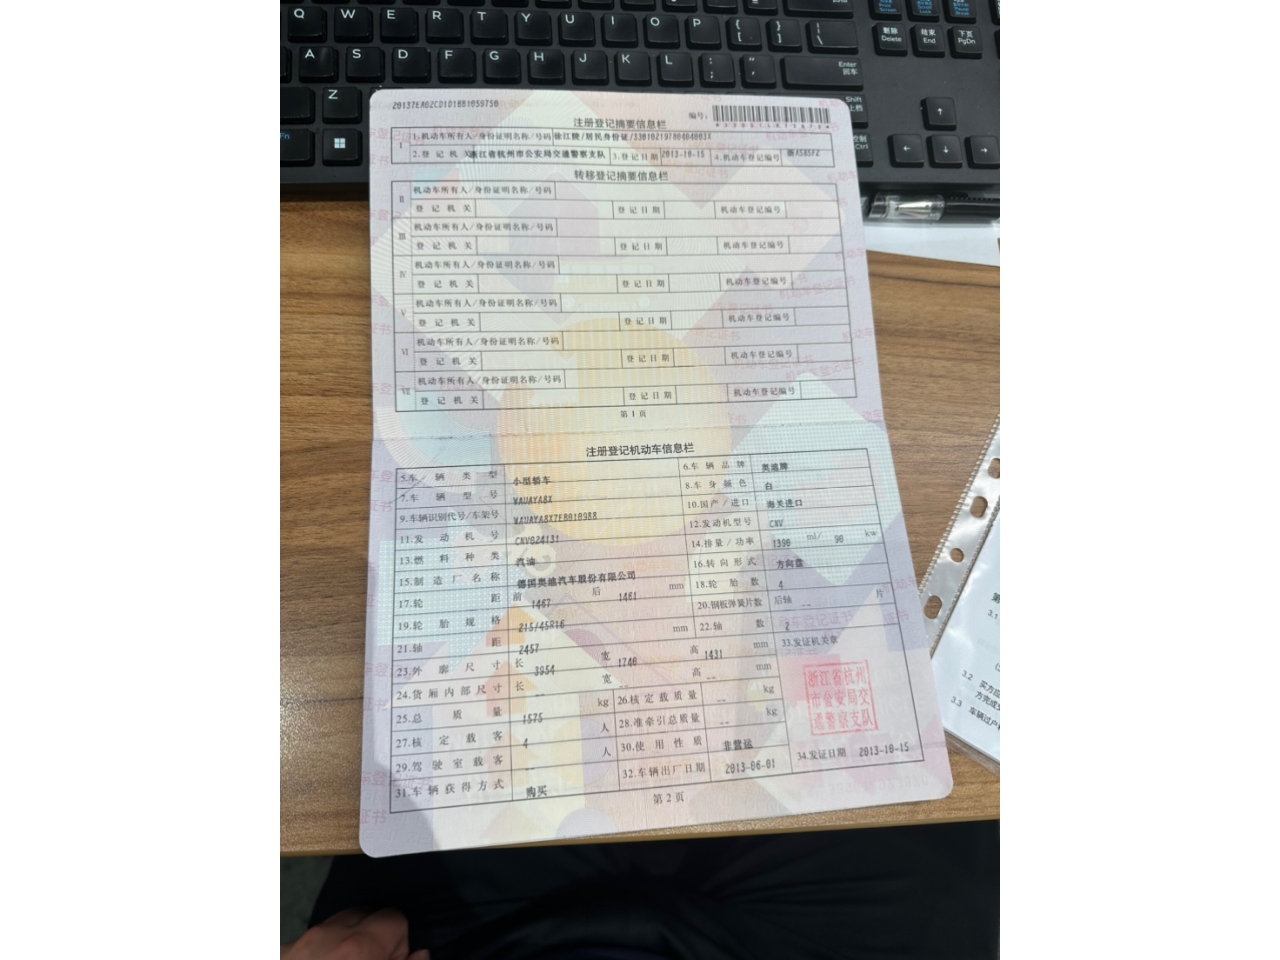 Q W E R T Y U I O P { [ } ] | \
删除 Delete 结束 End 下页 PgDn
A S D F G H J K L : ; " ' Enter 回车
Z
Shift
Fn
Ctrl
注册登记摘要信息栏
编号:
I 1.机动车所有人/身份证明名称/号码
2.登记机关 浙江省杭州市公安局交通警察支队 3.登记日期 2013-10-15 4.机动车登记编号
转移登记摘要信息栏
II 机动车所有人/身份证明名称/号码
登记机关 登记日期 机动车登记编号
III 机动车所有人/身份证明名称/号码
登记机关 登记日期 机动车登记编号
IV 机动车所有人/身份证明名称/号码
登记机关 登记日期 机动车登记编号
V 机动车所有人/身份证明名称/号码
登记机关 登记日期 机动车登记编号
VI 机动车所有人/身份证明名称/号码
登记机关 登记日期 机动车登记编号
VII 机动车所有人/身份证明名称/号码
登记机关 登记日期 机动车登记编号
第1页
注册登记机动车信息栏
5.车辆类型 小型轿车 6.车辆品牌 奥迪牌
7.车辆型号 WAUAYA8X 8.车身颜色 白
9.车辆识别代号/车架号 WAUAYA8X7EB010988 10.国产/进口 海关进口
11.发动机号 CNV024131 12.发动机型号 CNV
13.燃料种类 汽油 14.排量/功率 1390 ml/ 90 kw
15.制造厂名称 德国奥迪汽车股份有限公司 16.转向形式 方向盘
17.轮距 前 1467 后 1461 mm 18.轮胎数 4
19.轮胎规格 215/45R16 20.钢板弹簧片数 后轴 -- 片
21.轴距 2457 mm 22.轴数 2
23.外廓尺寸 长 3954 宽 1746 高 1431 mm 33.发证机关章
24.货厢内部尺寸 长 -- 宽 -- 高 -- mm
浙江省杭州市公安局交通警察支队
25.总质量 1575 kg 26.核定载质量 -- kg
27.核定载客 4 人 28.准牵引总质量 -- kg
29.驾驶室载客 -- 人 30.使用性质 非营运
31.车辆获得方式 购买 32.车辆出厂日期 2013-06-01 34.发证日期 2013-10-15
第2页
3.1
3.2 买方应
3.3 车辆过户